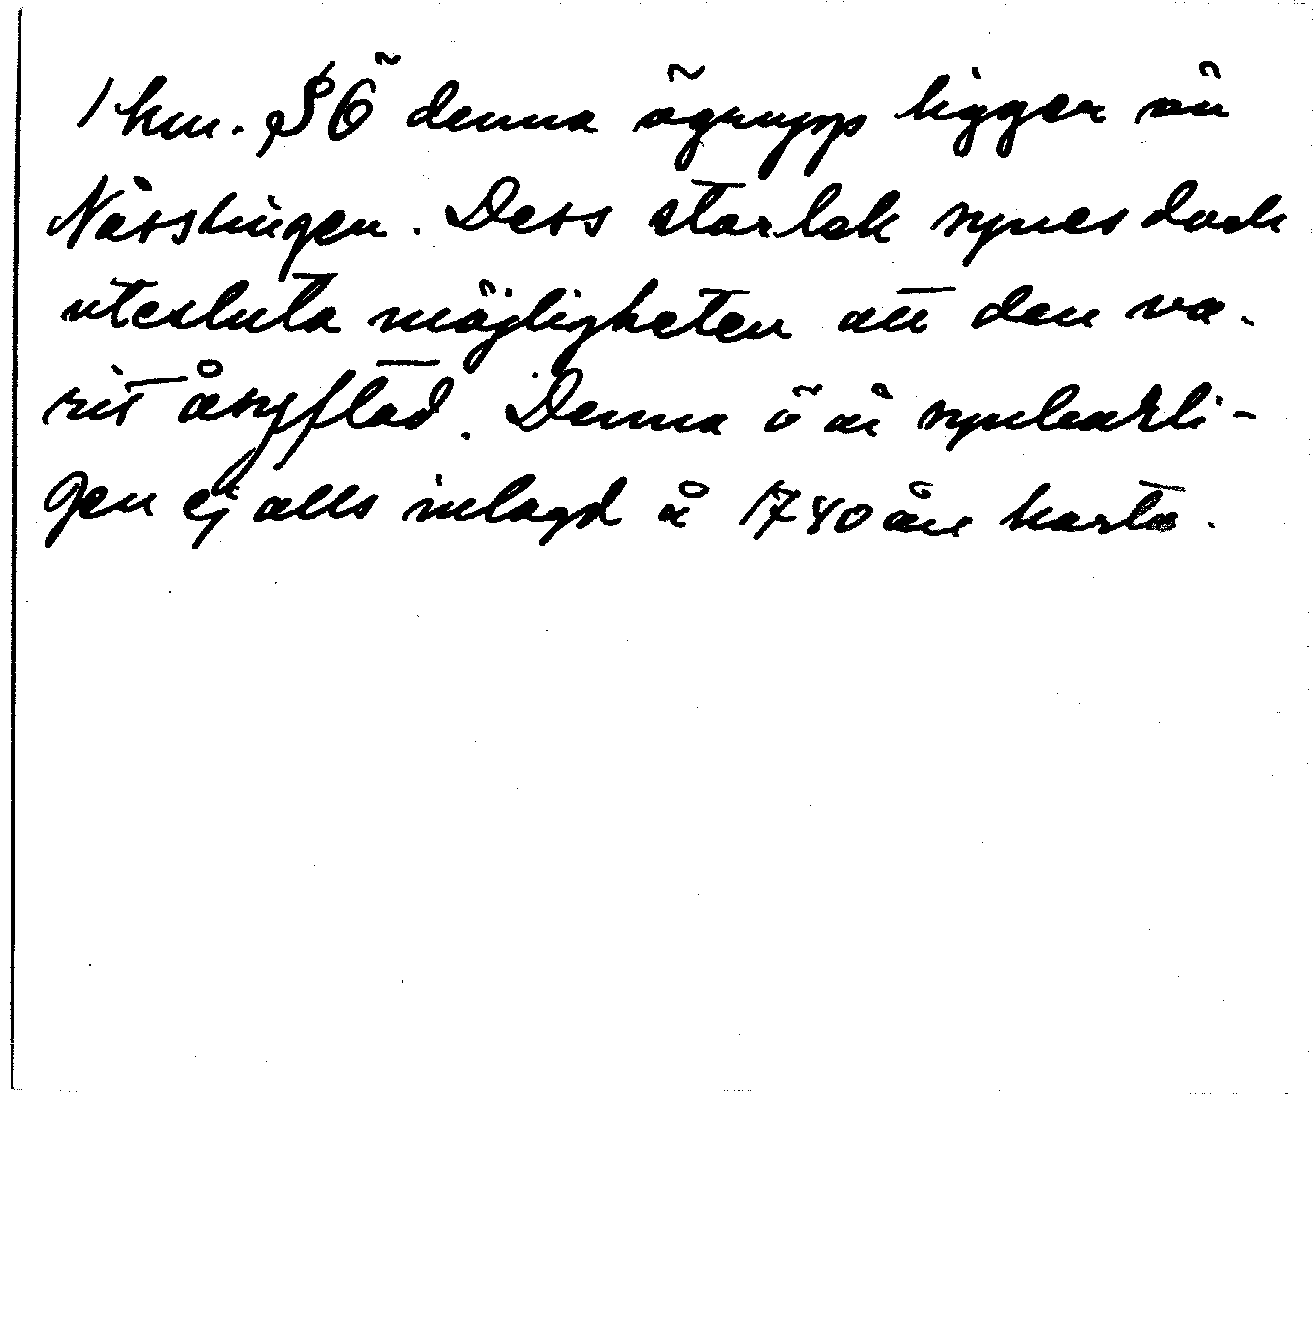 1 km. SÖ denna ögrupp ligger ön
Nässlingen. Dess storlek synes dock
utesluta möjligheten att den va-
rit åsyftad. Denna ö är synbarli-
gen ej alls inlagd å 1740 års karta.